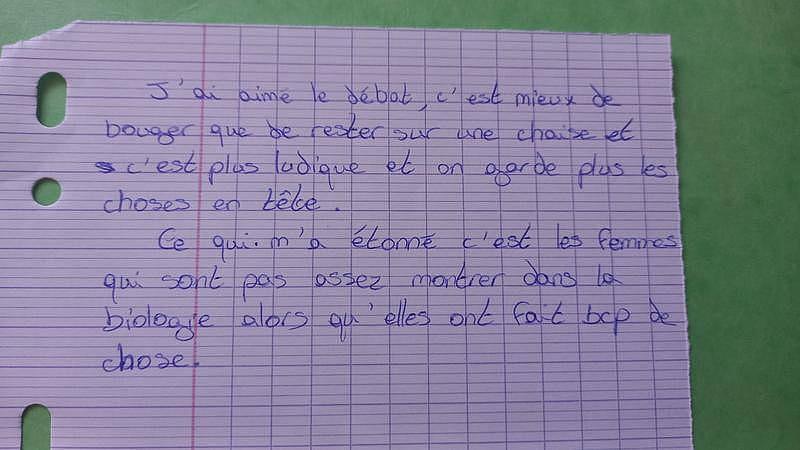 J'ai aimé le débat, c'est mieux de
bouger que de rester sur une chaise et
c'est plus ludique et on garde plus les
choses en tête.
Ce qui m'a étonné c'est les femmes
qui sont pas assez montrer dans la
biologie alors qu'elles ont fait bcp de
chose.